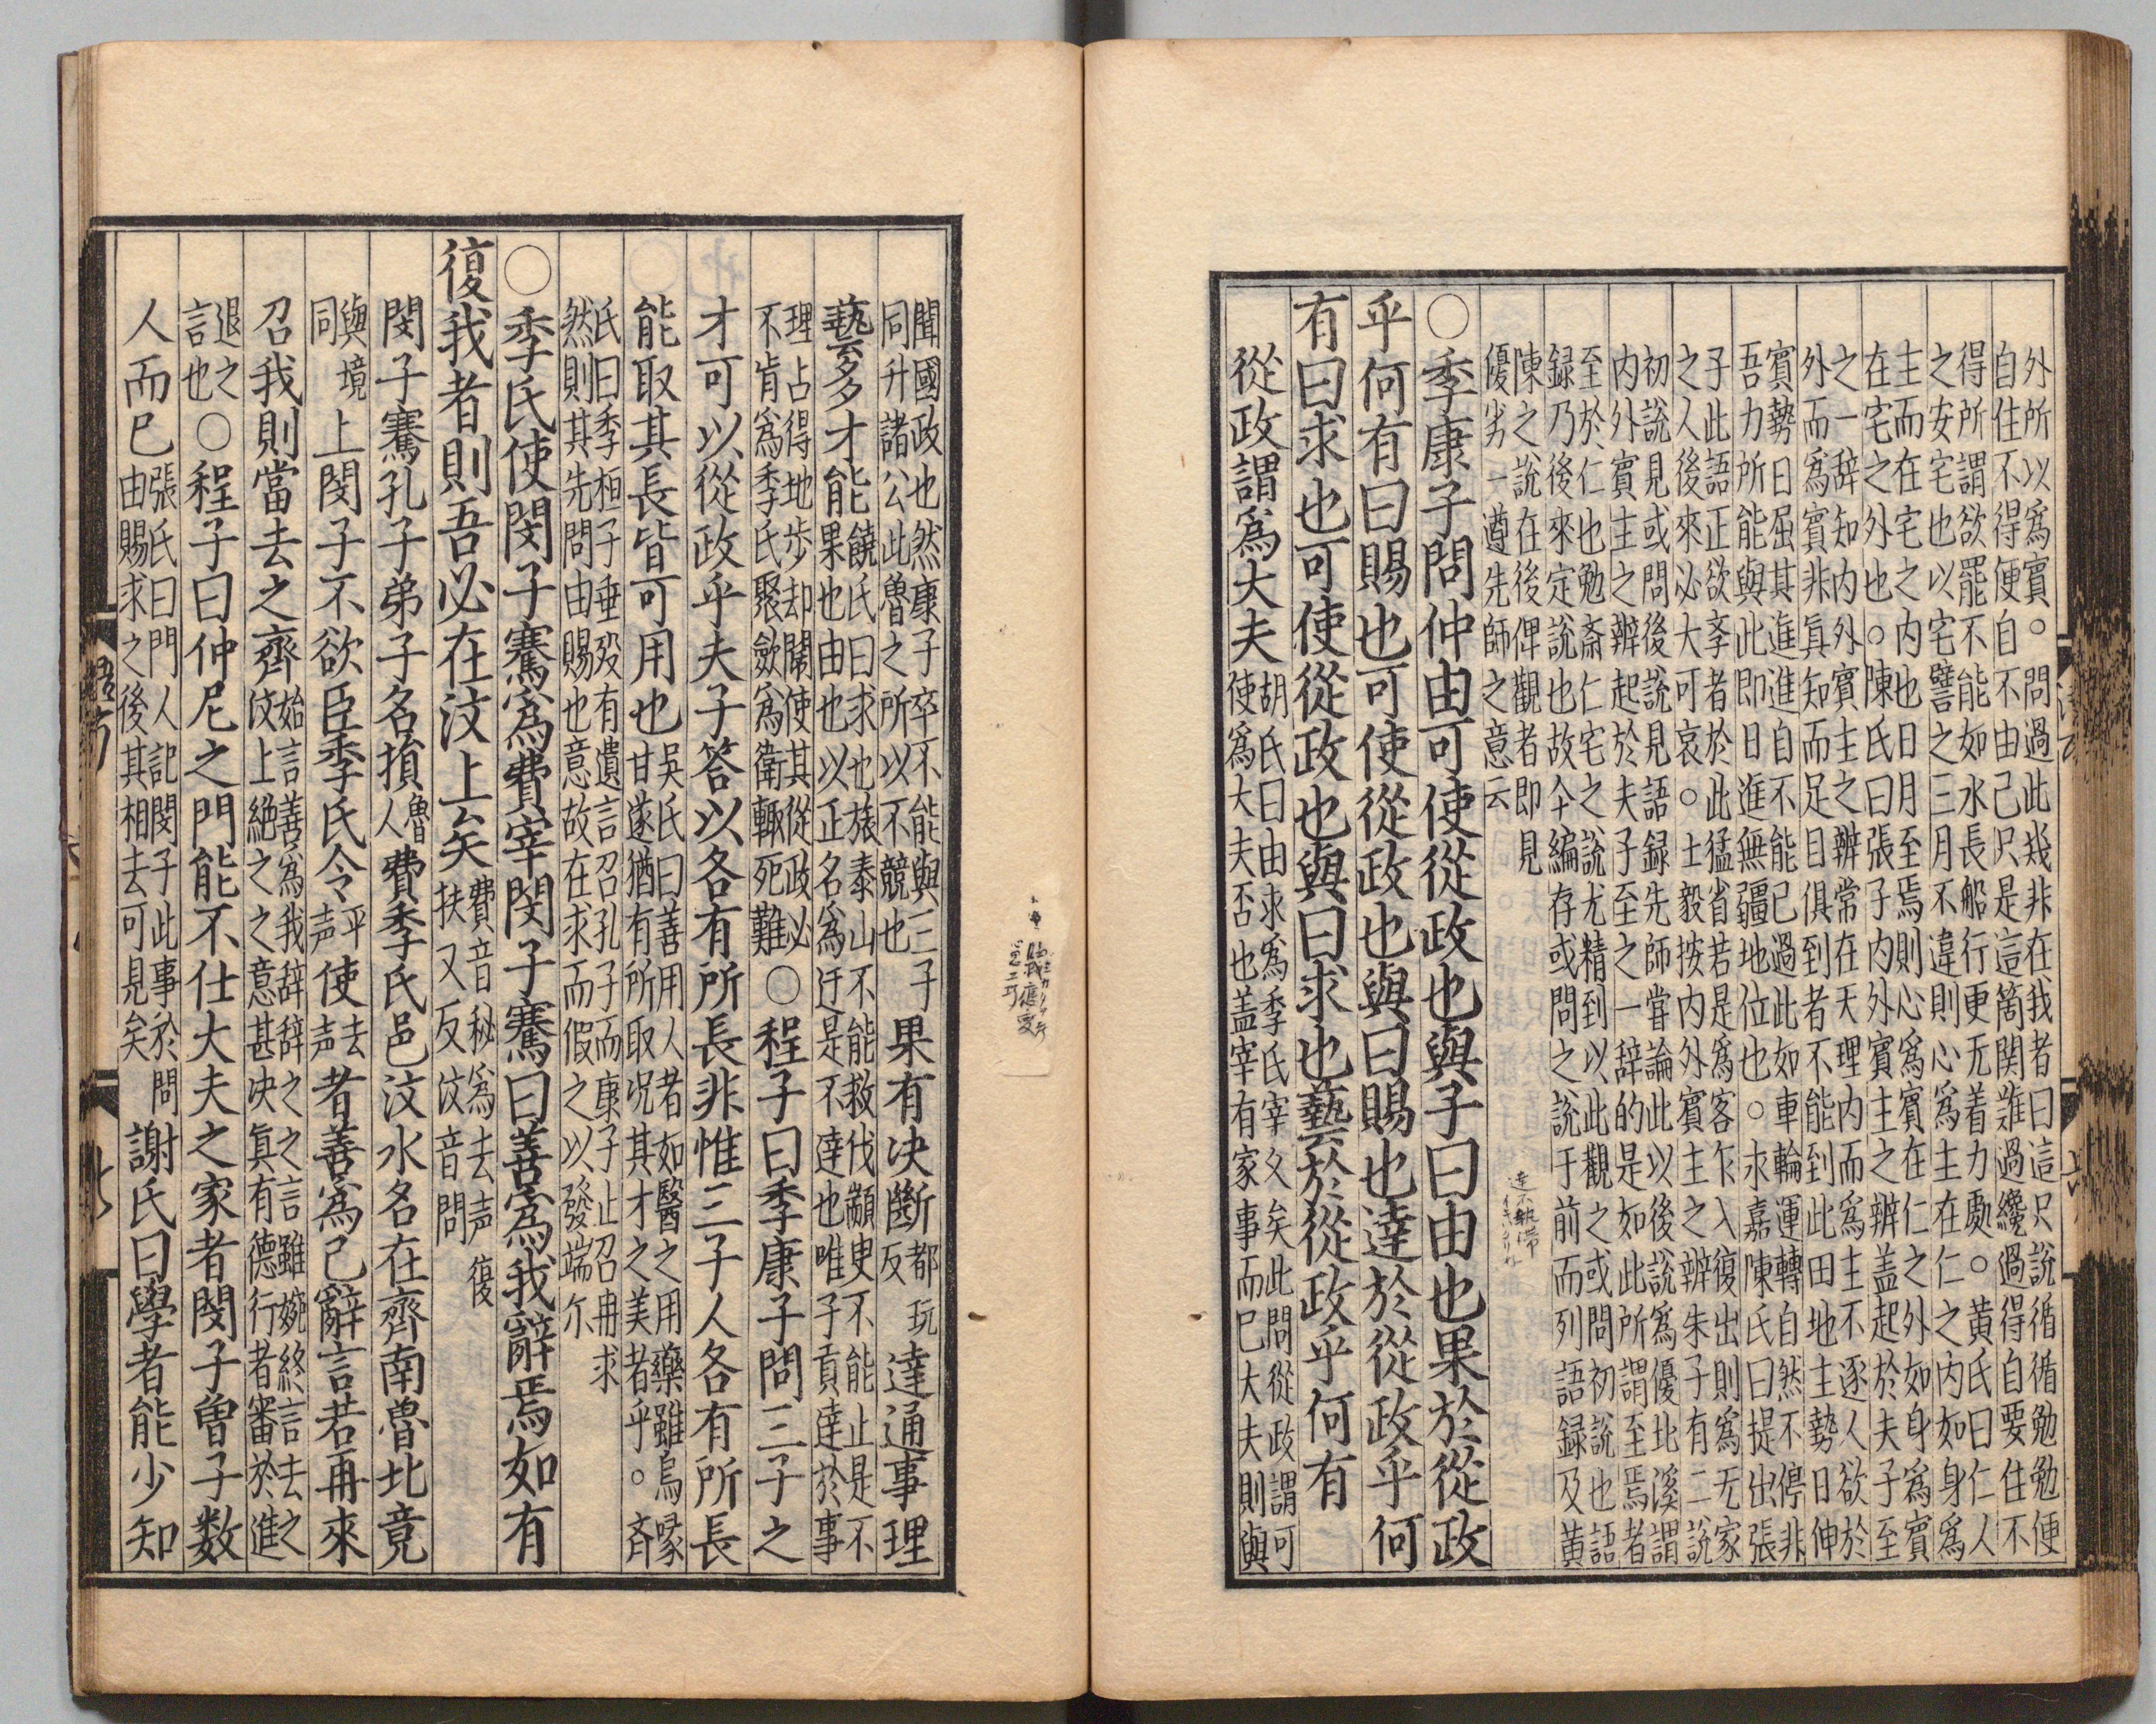 外所以爲賓。問過此幾非在我者曰這只說循循勉勉便
自住不得便自不由己只是這箇関難過纔過得自要住不
得所謂欲罷不能如水長船行更无着力處。黄氏曰仁人
之安宅也以宅譬之三月不違則心爲主在仁之内如身爲
主而在宅之内也日月至焉則心爲賓在仁之外如身爲賓
在宅之外也。陳氏曰張子内外賓主之辨盖起於夫子至
之一辞知内外賓主之辨常在天理内而爲主不逐人欲於
外而爲賓非真知而足目俱到者不能到此田地主勢日伸
賓勢日屈其進進自不能已過此如車輪運轉自然不停非
吾力所能與此即日進無疆地位也。永嘉陳氏曰提出張
子此語正欲孝者於此猛省若是爲客乍入復出則爲无家
之人後來必大可哀。士毅按内外賓主之辨朱子有二說
初說見或問後說見語録先師甞論此以後說爲優北溪謂
内外賓主之辨起於夫子至之一辞的是如此所謂至焉者
至於仁也勉斋仁宅之說尤精到以此觀之或問初說也語
録乃後來定說也故仐編存或問之說于前而列語録及黄
陳之說在後俾觀者即見
優劣一遵先師之意云
○季康子問仲由可使從政也與子曰由也果於從政
乎何有曰賜也可使從政也與曰賜也達於從政乎何
有曰求也可使從政也與曰求也藝於從政乎何有
從政謂爲大夫胡氏曰由求爲季氏宰久矣此問從政謂可
使爲大夫否也盖宰有家事而已大夫則與
聞國政也然康子卒不能與三子
同升諸公此魯之所以不競也果有决斷都玩
反達通事理
藝多才能饒氏曰求也旅泰山不能救伐顓臾不能止是不
果也由也以正名爲迂是不達也唯子貢達於事
理占得地步却闊使其從政必
不肯爲季氏聚歛爲衛輙死難○程子曰季康子問三子之
才可以從政乎夫子答以各有所長非惟三子人各有所長
能取其長皆可用也吳氏曰善用人者如醫之用藥雖烏喙
甘遂猶有所取况其才之美者乎。斉
氏曰季桓子垂歿有遺言召孔子而康子止召冉求
然則其先問由賜也意故在求而假之以發端尓
○季氏使閔子騫爲費宰閔子騫曰善爲我辭焉如有
復我者則吾必在汶上矣費音秘爲去声復
扶又反汶音問
閔子騫孔子弟子名損魯
人費季氏邑汶水名在齊南魯北竟
與境
同上閔子不欲臣季氏令平
声使去
声者善爲己辭言若再來
召我則當去之齊始言善爲我辞辞之之言雖婉終言去之
汶上絶之之意甚决真有德行者審於進
退之
言也○程子曰仲尼之門能不仕大夫之家者閔子曾子数
人而已張氏曰門人記閔子此事於問
由賜求之後其相去可見矣謝氏曰學者能少知